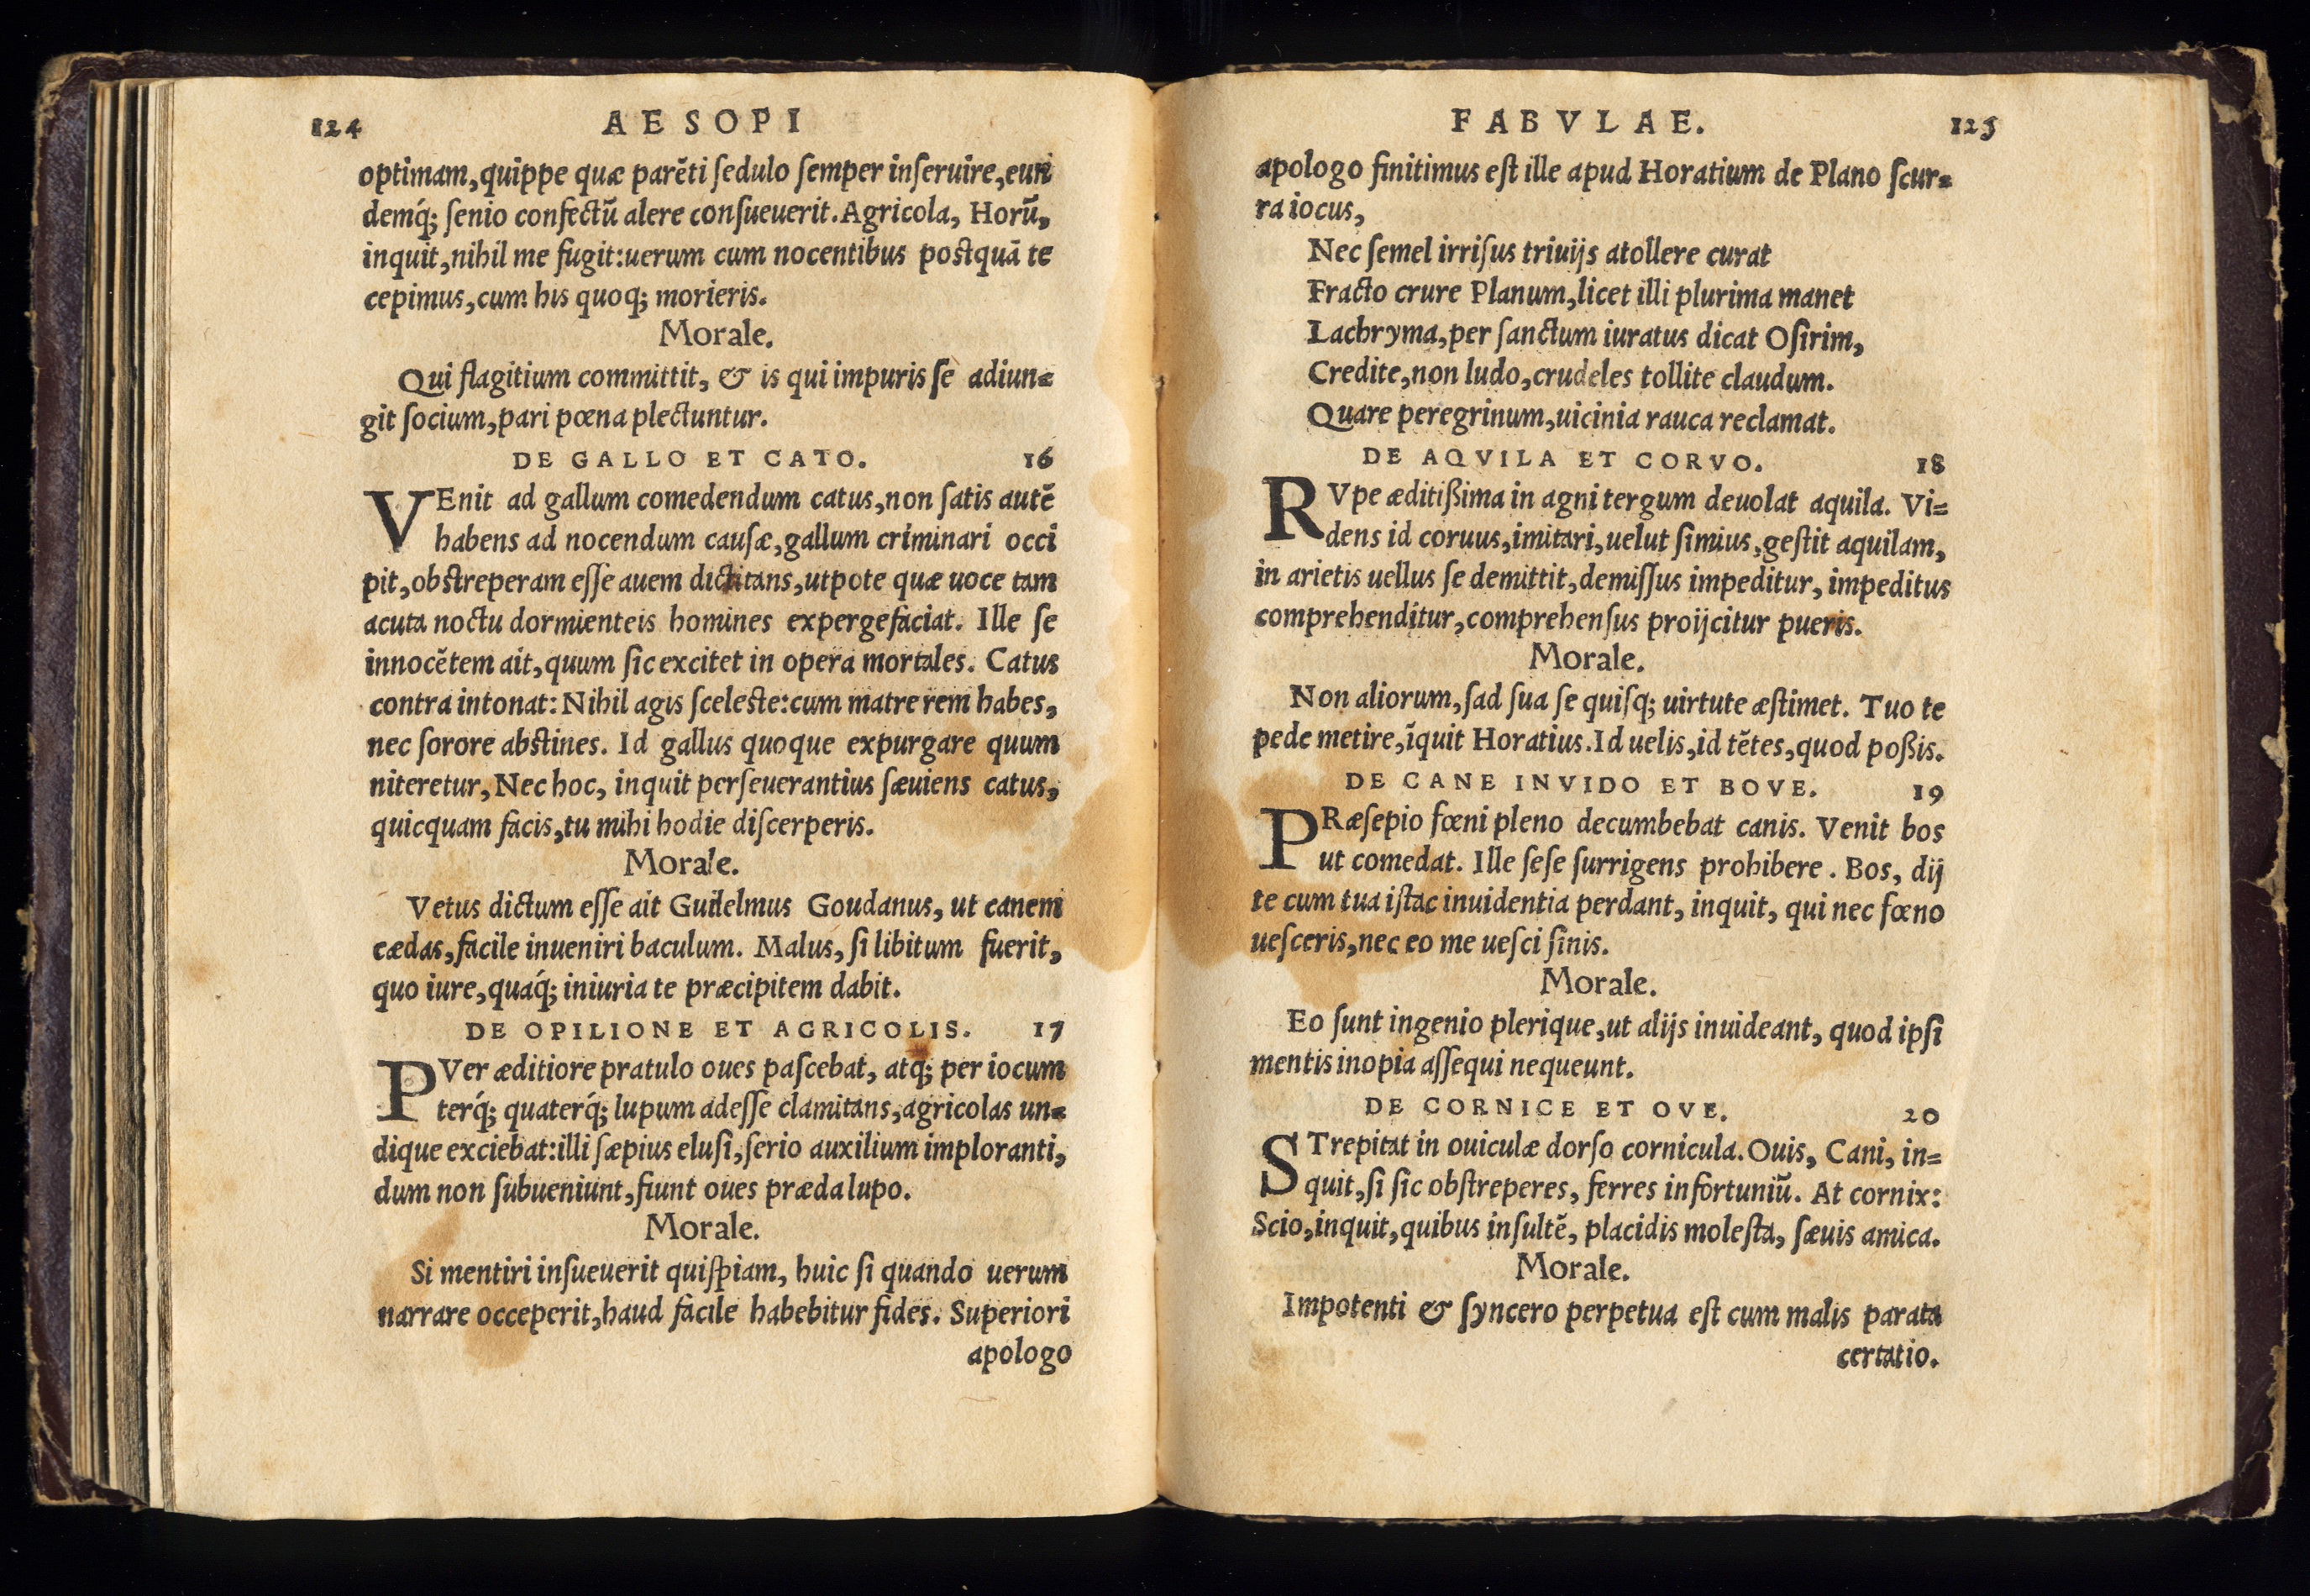 124 AESOPI
optimam, quippe quæ parẽti ſedulo ſemper inſeruire, eun
demq́; ſenio confectũ alere conſueuerit. Agricola, Horũ,
inquit, nihil me fugit: uerum cum nocentibus poſtquã te
cepimus, cum his quoq; morieris.
Morale.
Qui flagitium committit, & is qui impuris ſe adiun=
git ſocium, pari pœna plectuntur.
DE GALLO ET CATO. 16
VEnit ad gallum comedendum catus, non ſatis autẽ
habens ad nocendum cauſæ, gallum criminari occi
pit, obſtreperam eſſe auem dictitans, utpote quæ uoce tam
acuta noctu dormienteis homines expergefaciat. Ille ſe
innocẽtem ait, quum ſic excitet in opera mortales. Catus
contra intonat: Nihil agis ſceleſte: cum matre rem habes,
nec ſorore abſtines. Id gallus quoque expurgare quum
niteretur, Nec hoc, inquit perſeuerantius ſæuiens catus,
quicquam facis, tu mihi hodie diſcerperis.
Morale.
Vetus dictum eſſe ait Guilelmus Goudanus, ut canem
cædas, facile inueniri baculum. Malus, ſi libitum fuerit,
quo iure, quaq́; iniuria te præcipitem dabit.
DE OPILIONE ET AGRICOLIS. 17
PVer æditiore pratulo oues paſcebat, atq; per iocum
terq́; quaterq́; lupum adeſſe clamitans, agricolas un=
dique exciebat: illi ſæpius eluſi, ſerio auxilium imploranti,
dum non ſubueniunt, fiunt oues præda lupo.
Morale.
Si mentiri inſueuerit quiſpiam, huic ſi quando uerum
narrare occeperit, haud facile habebitur fides. Superiori
apologo
FABVLAE. 125
apologo finitimus eſt ille apud Horatium de Plano ſcur=
ra iocus,
Nec ſemel irriſus triuijs atollere curat
Fracto crure Planum, licet illi plurima manet
Lachryma, per ſanctum iuratus dicat Oſirim,
Credite, non ludo, crudeles tollite claudum.
Quare peregrinum, uicinia rauca reclamat.
DE AQVILA ET CORVO. 18
RVpe æditißima in agni tergum deuolat aquila. Vi=
dens id coruus, imitari, uelut ſimius, geſtit aquilam,
in arietis uellus ſe demittit, demiſſus impeditur, impeditus
comprehenditur, comprehenſus proijcitur pueris.
Morale.
Non aliorum, ſad ſua ſe quiſq; uirtute æſtimet. Tuo te
pede metire, ĩquit Horatius. Id uelis, id tẽtes, quod poßis.
DE CANE INVIDO ET BOVE. 19
PRæſepio fœni pleno decumbebat canis. Venit bos
ut comedat. Ille ſeſe ſurrigens prohibere. Bos, dij
te cum tua iſtac inuidentia perdant, inquit, qui nec fœno
ueſceris, nec eo me ueſci ſinis.
Morale.
Eo ſunt ingenio plerique, ut alijs inuideant, quod ipſi
mentis inopia aſſequi nequeunt.
DE CORNICE ET OVE. 20
STrepitat in ouiculæ dorſo cornicula. Ouis, Cani, in=
quit, ſi ſic obſtreperes, ferres infortuniũ. At cornix:
Scio, inquit, quibus inſultẽ, placidis moleſta, ſæuis amica.
Morale.
Impotenti & ſyncero perpetua eſt cum malis parata
certatio.